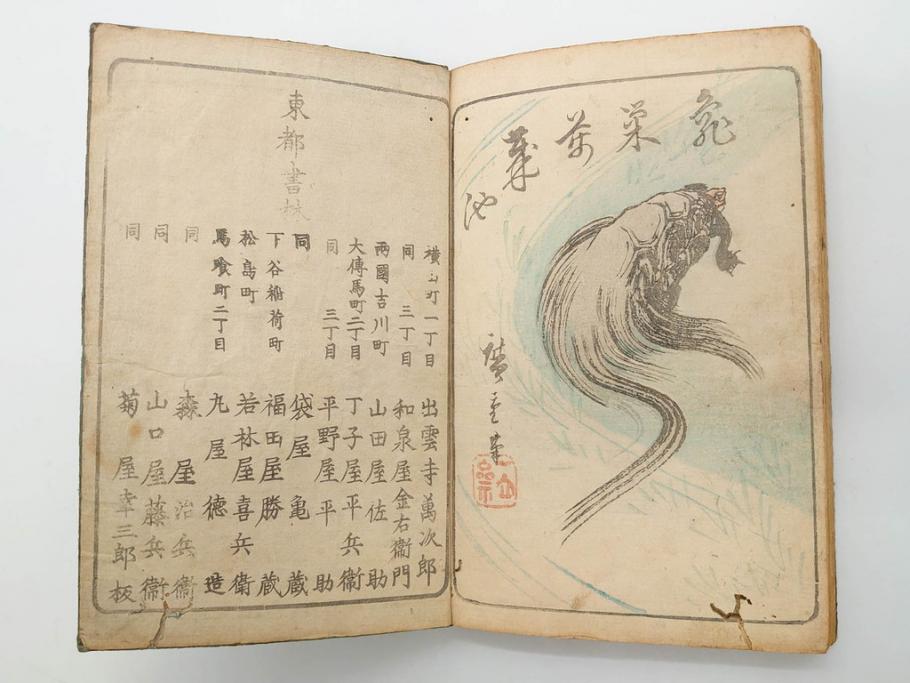 龜巣葉池
廣重筆
東都書林
横山町一丁目 出雲寺萬次郎
同 三丁目 和泉屋金右衞門
両國吉川町 山田屋佐助
大傳馬町二丁目 丁子屋平兵衞
同 三丁目 平野屋平助
同 袋屋亀蔵
下谷稲荷町 福田屋勝蔵
松島町 若林屋喜兵衛
馬喰町二丁目 丸屋徳造
同 森屋治兵衞
同 山口屋藤兵衞
同 菊屋幸三郎板